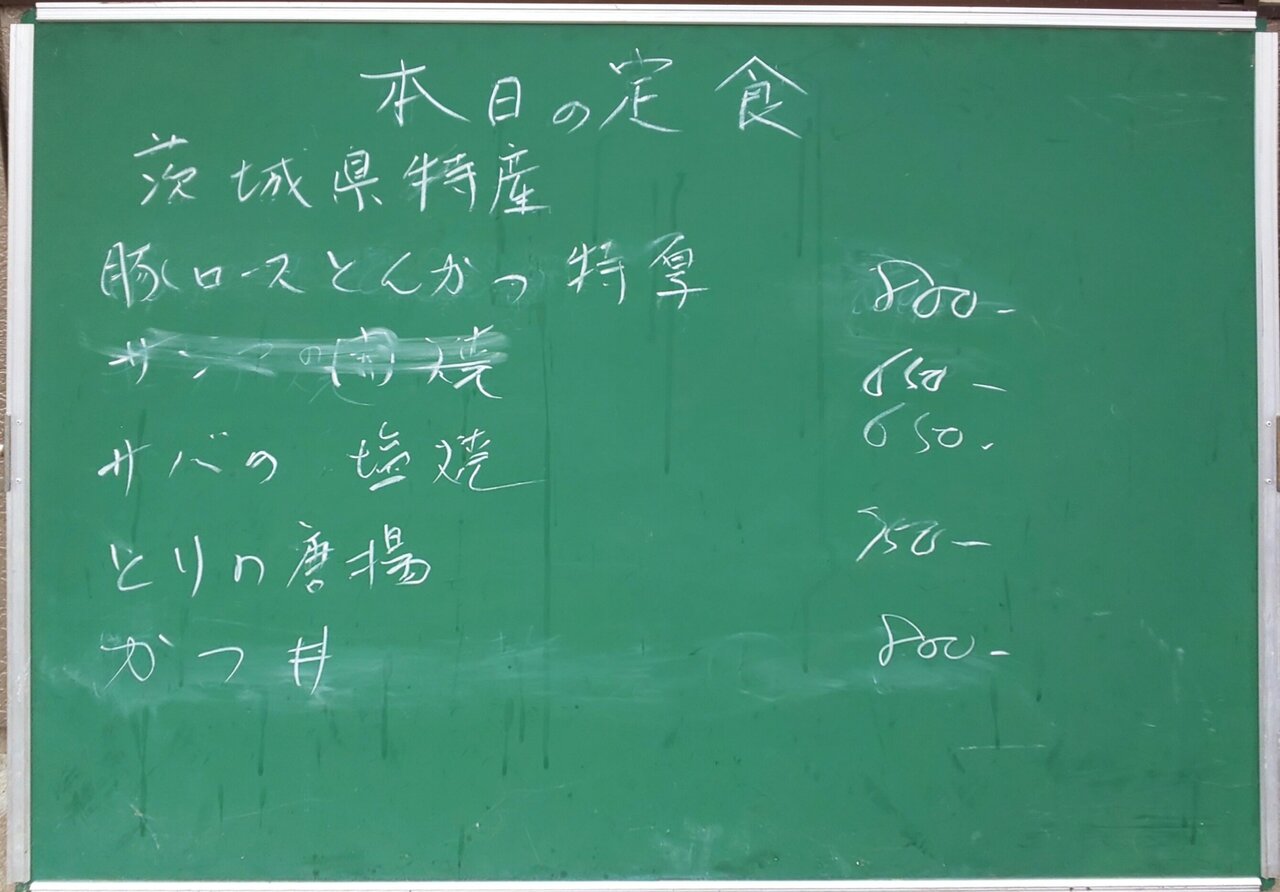 本日の定食
茨城県特産
豚ロースとんかつ 特厚 800-
サンマの 焼 650-
サバの 塩焼 650-
とりの唐揚 750-
かつ丼 800-